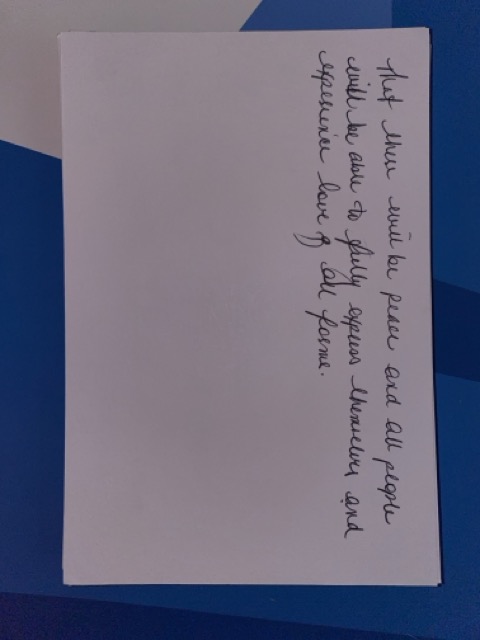 That there will be peace and all people
will be able to fully express themselves and
experience love of all forms.